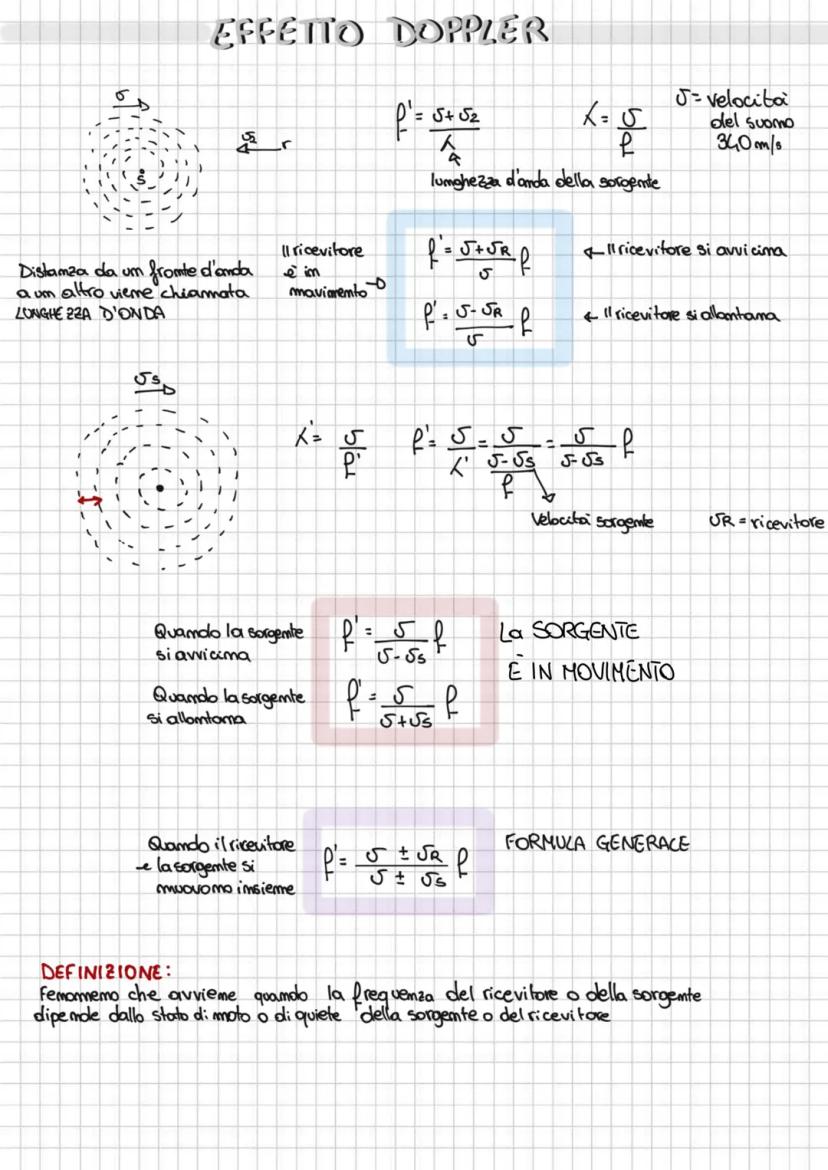 EFFETTO DOPPLER
v
v2 r
s
f' = v+v2 / λ
λ = v / f
v = velocità
del suono
340 m/s
lunghezza d'onda della sorgente
Distanza da un fronte d'onda
a un altro viene chiamata
LUNGHEZZA D'ONDA
Il ricevitore
è in
movimento
f' = v+vR / v f
← Il ricevitore si avvicina
f' = v-vR / v f
← Il ricevitore si allontana
vs
λ' = v / f'
f' = v / λ' = v / (v-vs / f) = v / v-vs f
Velocità sorgente
vR = ricevitore
Quando la sorgente
si avvicina
f' = v / v-vs f
La SORGENTE
È IN MOVIMENTO
Quando la sorgente
si allontana
f' = v / v+vs f
Quando il ricevitore
e la sorgente si
muovono insieme
f' = v ± vR / v ± vs f
FORMULA GENERALE
DEFINIZIONE:
Fenonmemo che avviene quando la frequenza del ricevitore o della sorgente
dipende dallo stato di moto o di quiete della sorgente o del ricevitore